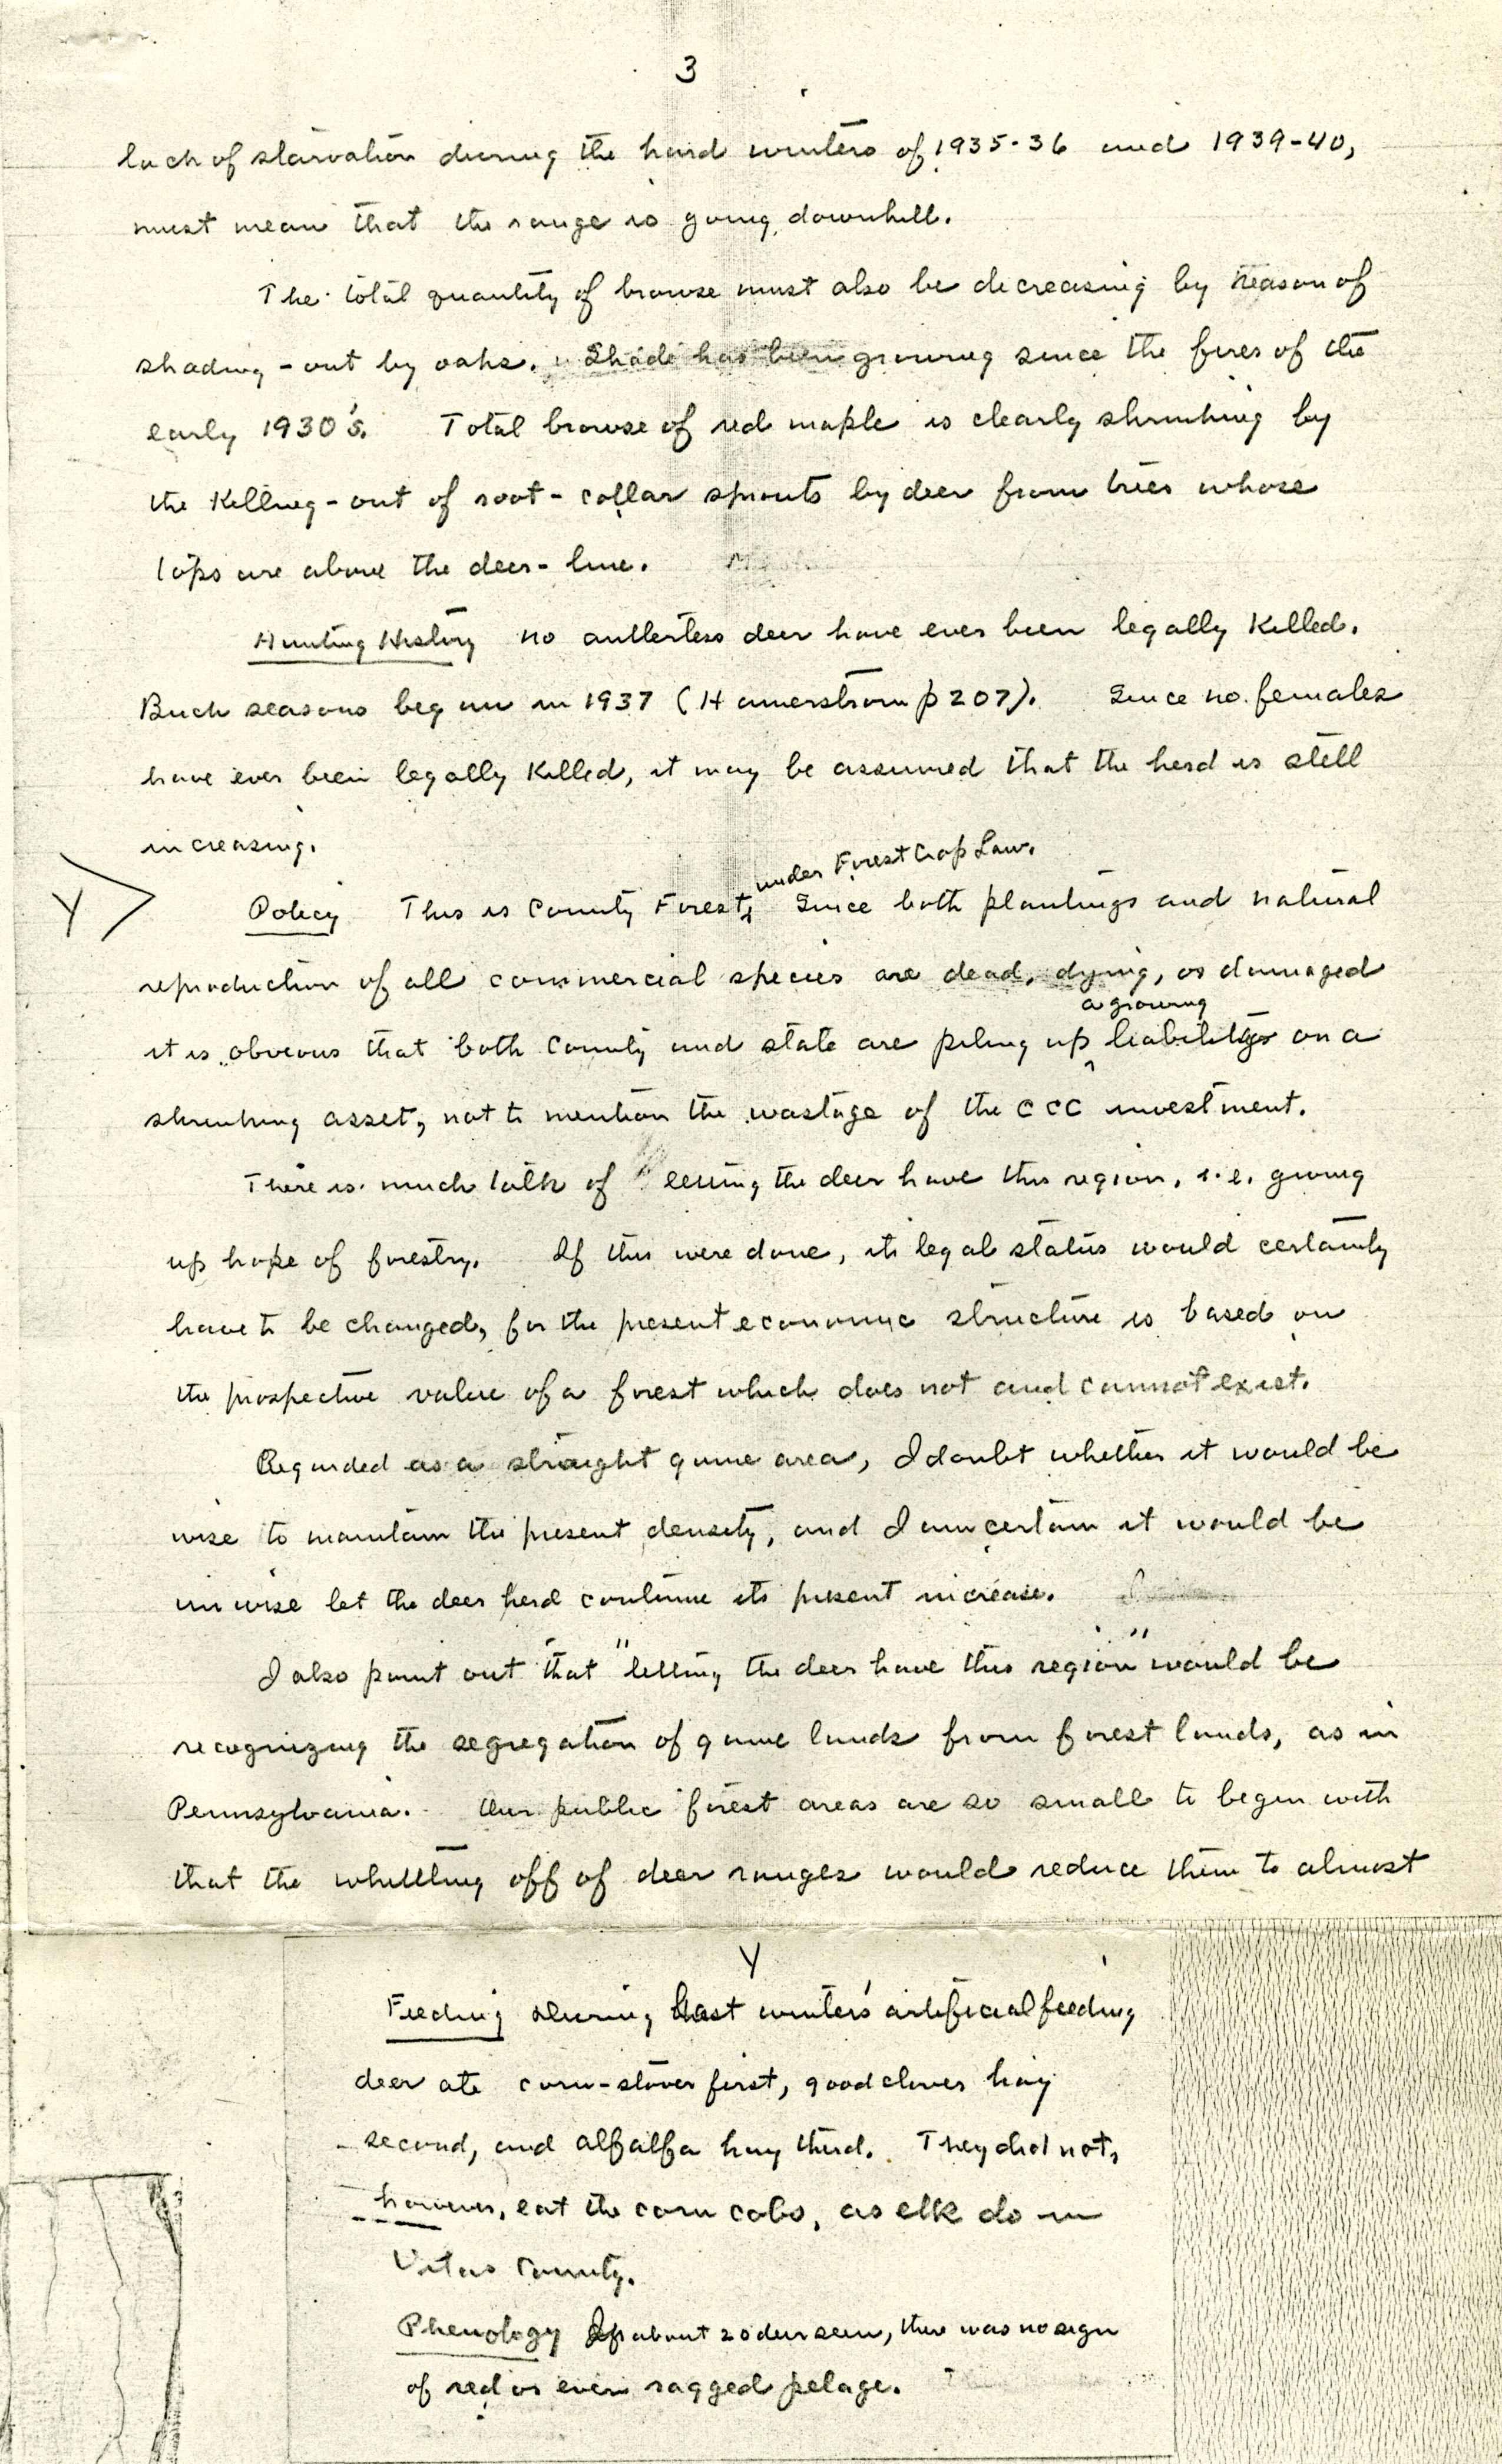 3
lack of starvation during the hard winters of 1935-36 and 1939-40,
must mean that the range is going downhill.
The total quantity of browse must also be decreasing by reason of
shading-out by oaks. Shade has been growing since the fires of the
early 1930's. Total browse of red maple is clearly shrinking by
the killing-out of root-collar sprouts by deer from trees whose
tops are above the deer-line.
Hunting History no antlerless deer have ever been legally killed.
Buck seasons began in 1937 (Hamerstrom p 207). Since no females
have ever been legally killed, it may be assumed that the herd is still
increasing.
under Forest Crop Law.
Y Policy This is County Forest, Since both plantings and natural
reproduction of all commercial species are dead, dying, or damaged
a growing
it is obvious that both County and state are piling up liability on a
shrinking asset, not to mention the wastage of the CCC investment.
There is much talk of letting the deer have this region, i.e. giving
up hope of forestry. If this were done, its legal status would certainly
have to be changed, for the present economic structure is based on
the prospective value of a forest which does not and cannot exist.
Regarded as a straight game area, I doubt whether it would be
wise to maintain the present density, and I am certain it would be
unwise let the deer herd continue its present increase.
I also point out that "letting the deer have this region" would be
recognizing the segregation of game lands from forest lands, as in
Pennsylvania. Our public forest areas are so small to begin with
that the whittling off of deer ranges would reduce them to almost
Y
Feeding During last winter's artificial feeding
deer ate corn-stover first, good clover hay
second, and alfalfa hay third. They did not,
however, eat the corn cobs, as elk do in
Vilas County.
Phenology In about 20 deer seen, there was no sign
of red or even ragged pelage.